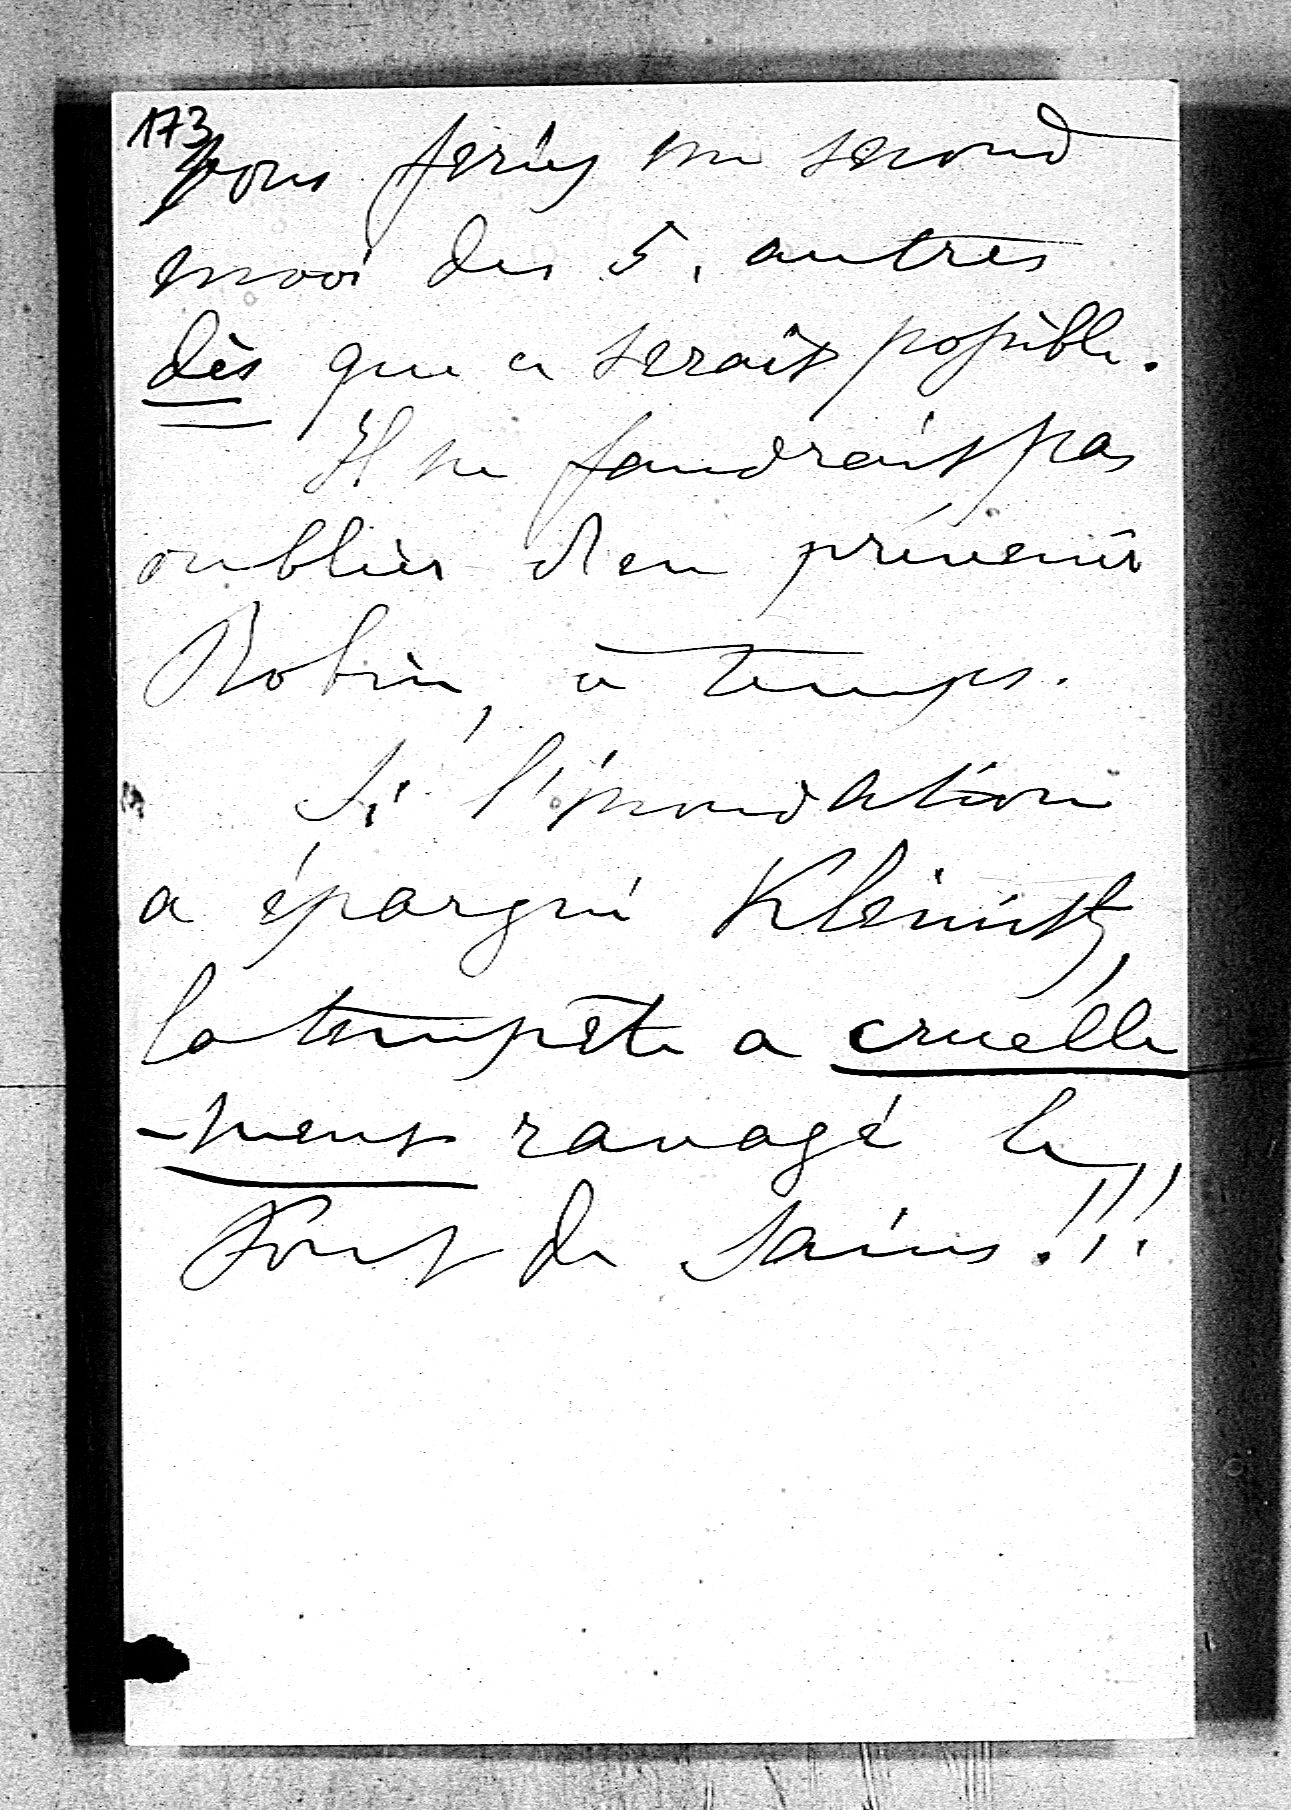 173
vous feriez un second
envoi des 5. autres
dès que ce serait possible.
Il ne faudrait pas
oublier d'en prévenir
Robin, à temps.
Si l'inondation
a épargné
la tempête a cruelle
-ment ravagé le
Font de Sains!!!